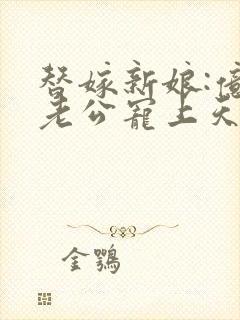 替嫁新娘:億
老公寵上天
金鶚